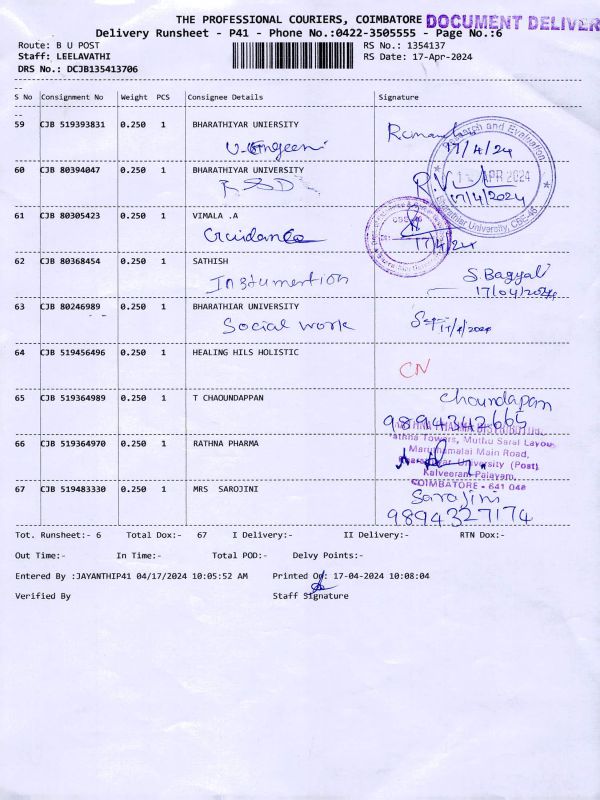 THE PROFESSIONAL COURIERS, COIMBATORE DOCUMENT DELIVER
Delivery Runsheet - P41 - Phone No.:0422-3505555 - Page No.:6
Route: B U POST RS No.: 1354137
Staff: LEELAVATHI RS Date: 17-Apr-2024
DRS No.: DCJB135413706
S No Consignment No Weight PCS Consignee Details Signature
59 CJB 519393831 0.250 1 BHARATHIYAR UNIERSITY
17/4/24
60 CJB 80394047 0.250 1 BHARATHIYAR UNIVERSITY
RSD R.V
17/4/2024
Research and Evaluation
APR 2024
Bharathiar University, CBE-46
61 CJB 80305423 0.250 1 VIMALA .A
Guidance 17/4/24
62 CJB 80368454 0.250 1 SATHISH
Instumention S. Bagyal
17/04/2024
63 CJB 80246989 0.250 1 BHARATHIAR UNIVERSITY
Social work 17/4/2024
64 CJB 519456496 0.250 1 HEALING HILS HOLISTIC
CN
65 CJB 519364989 0.250 1 T CHAOUNDAPPAN Choundapan
9894342665
66 CJB 519364970 0.250 1 RATHNA PHARMA
Rathna Towers, Muthu Saral Layou
Maruthamalai Main Road,
Bharathiar University (Post)
Kalveeram Palayam,
COIMBATORE - 641 046
67 CJB 519483330 0.250 1 MRS SAROJINI Sarajini
9894327174
Tot. Runsheet:- 6 Total Dox:- 67 I Delivery:- II Delivery:- RTN Dox:-
Out Time:- In Time:- Total POD:- Delvy Points:-
Entered By :JAYANTHIP41 04/17/2024 10:05:52 AM Printed On: 17-04-2024 10:08:04
Verified By Staff Signature